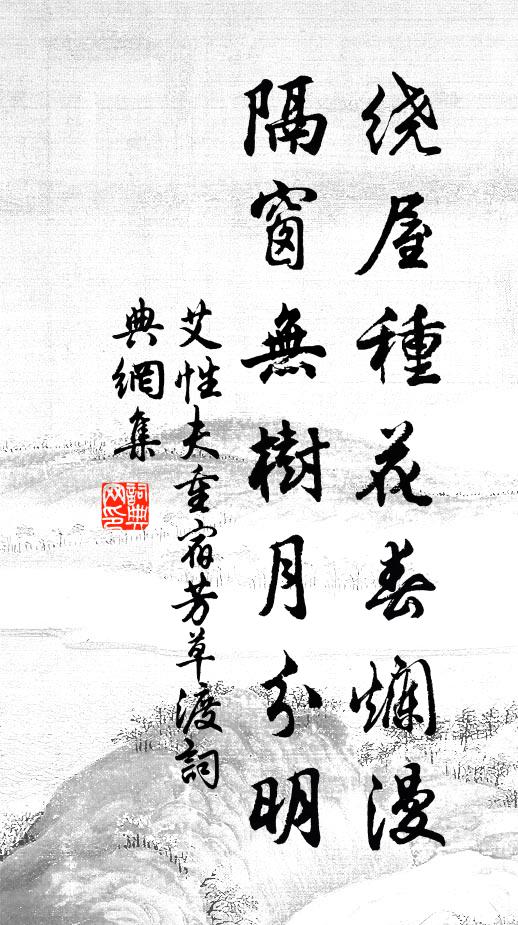 绕屋種花春爛漫
隔窗無樹月分明
艾性夫重宿芳草渡詞
典網集
詞典网印